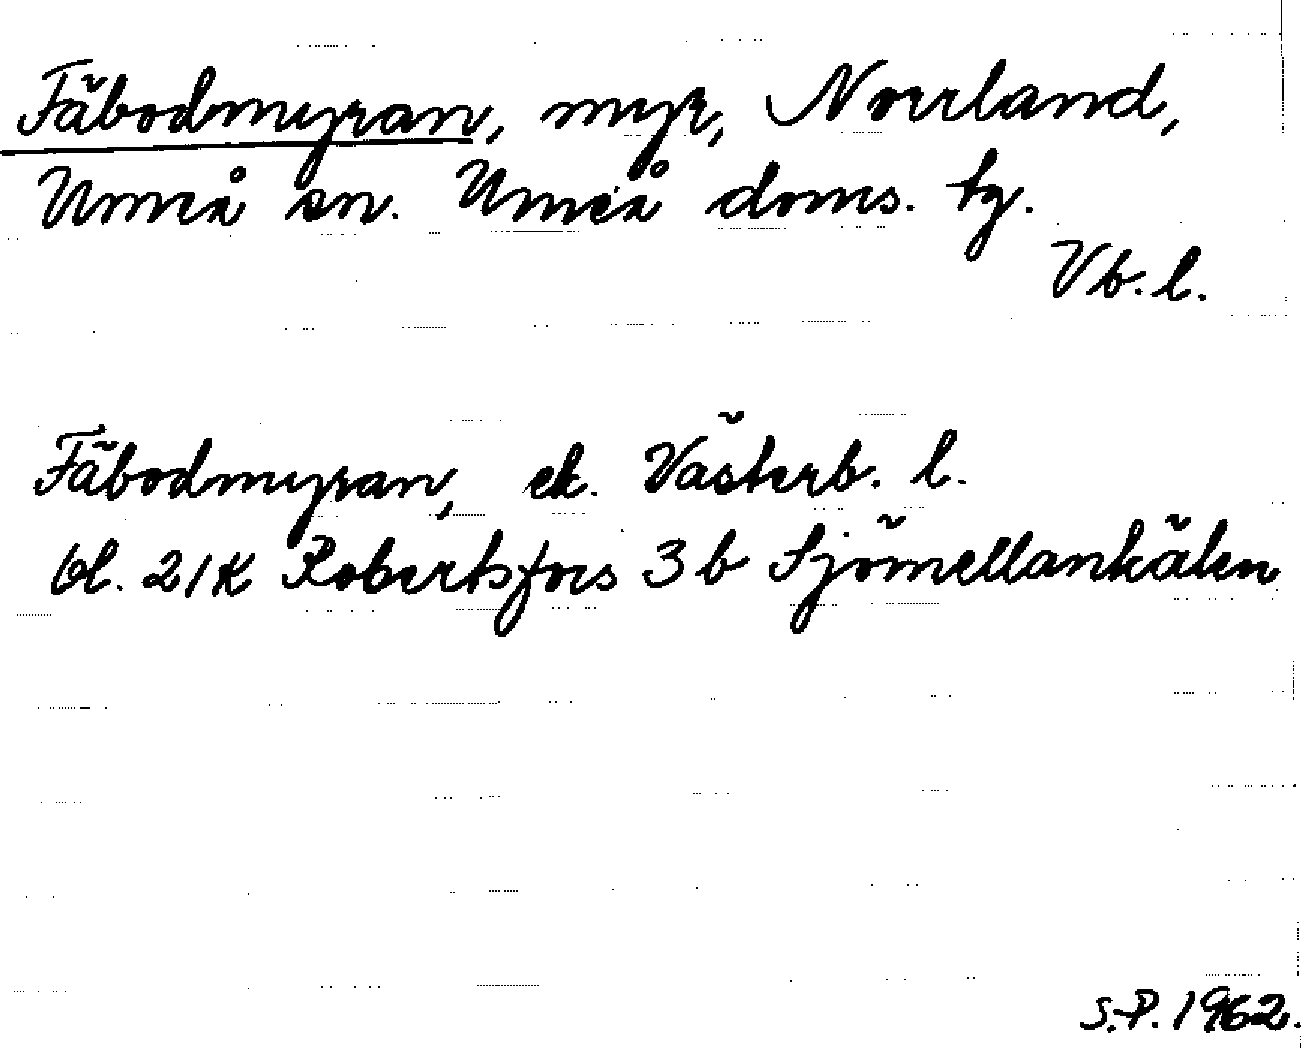 Fäbodmyran, myr, Norrland,
Umeå sn. Umeå doms. tg.
Vb. l.
Fäbodmyran, ek. Västerb. l.
bl. 21K Robertsfors 3 b Sjömellankälen
S.-P. 1962.